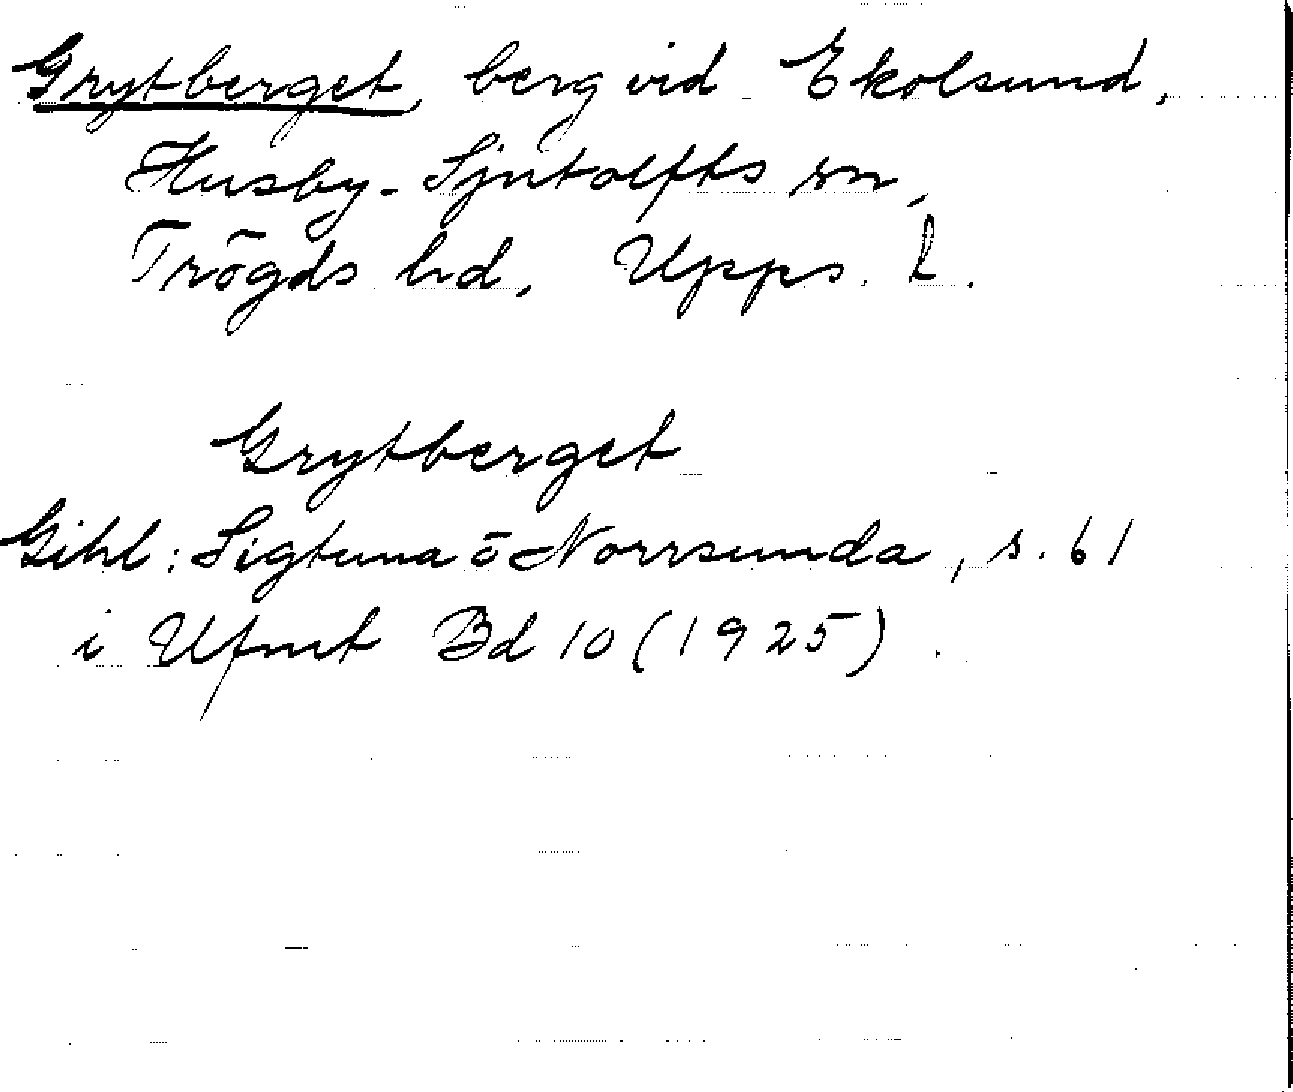 Grytberget, berg vid Ekolsund,
Husby-Sjutolfts sn,
Trögds hd, Upps. l.
Grytberget
Gihl: Sigtuna o Norrsunda, s. 61
i Ufmt Bd 10 (1925).